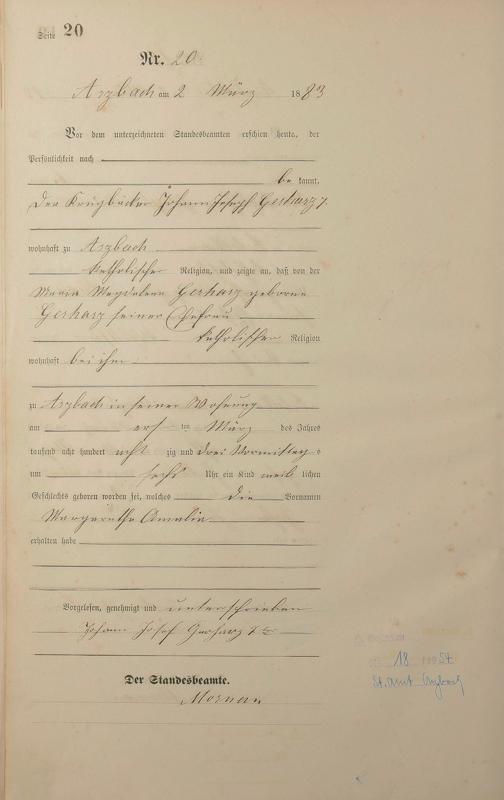 Seite 20
Nr. 20.
Arzbach am 2 März 1883
Vor dem unterzeichneten Standesbeamten erschien heute, der
Persönlichkeit nach
be kannt,
der Krugbäcker Johann Joseph Gerharz
wohnhaft zu Arzbach
katholischer Religion, und zeigte an, daß von der
Maria Magdalena Gerharz geborene
Gerharz seiner Ehefrau
katholischer Religion
wohnhaft bei ihm
zu Arzbach in seiner Wohnung
am ers ten März des Jahres
tausend acht hundert acht zig und drei Vormittags
um sechs Uhr ein Kind weib lichen
Geschlechts geboren worden sei, welches die Vornamen
Margaretha Amalia
erhalten habe
Vorgelesen, genehmigt und unterschrieben
Johann Josef Gerharz
Der Standesbeamte.
18
St. Amt Arzbach